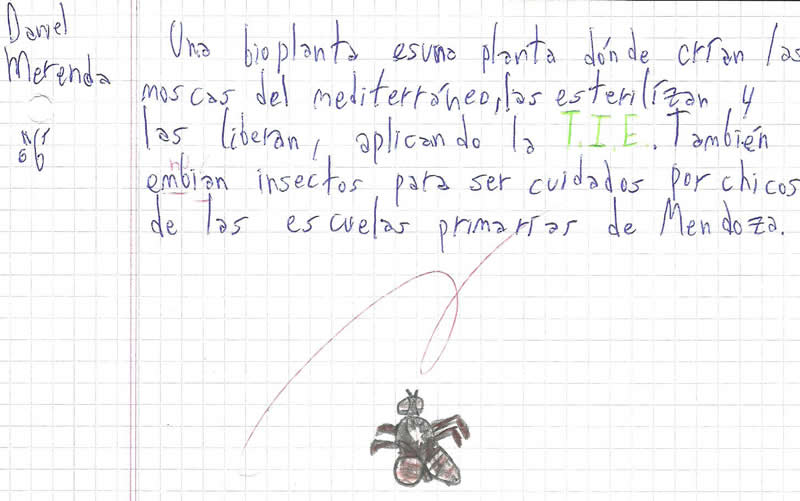 Daniel
Merenda
Una bioplanta es una planta dónde crían las
moscas del mediterráneo, las esterilizan y
las liberan, aplicando la T.I.E. También
embian insectos para ser cuidados por chicos
de las escuelas primarias de Mendoza.